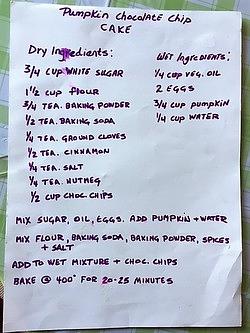 Pumpkin Chocolate Chip
CAKE
Dry Ingredients:
3/4 cup white sugar
1 1/2 cup flour
3/4 tea. baking powder
1/2 tea. baking soda
1/4 tea. ground cloves
1/2 tea. cinnamon
1/4 tea. salt
1/4 tea. nutmeg
1/2 cup choc. chips
Wet Ingredients:
1/4 cup veg. oil
2 eggs
3/4 cup pumpkin
1/4 cup water
Mix sugar, oil, eggs. Add pumpkin + water
Mix flour, baking soda, baking powder, spices
+ salt
Add to wet mixture + choc. chips
Bake @ 400° for 20-25 minutes